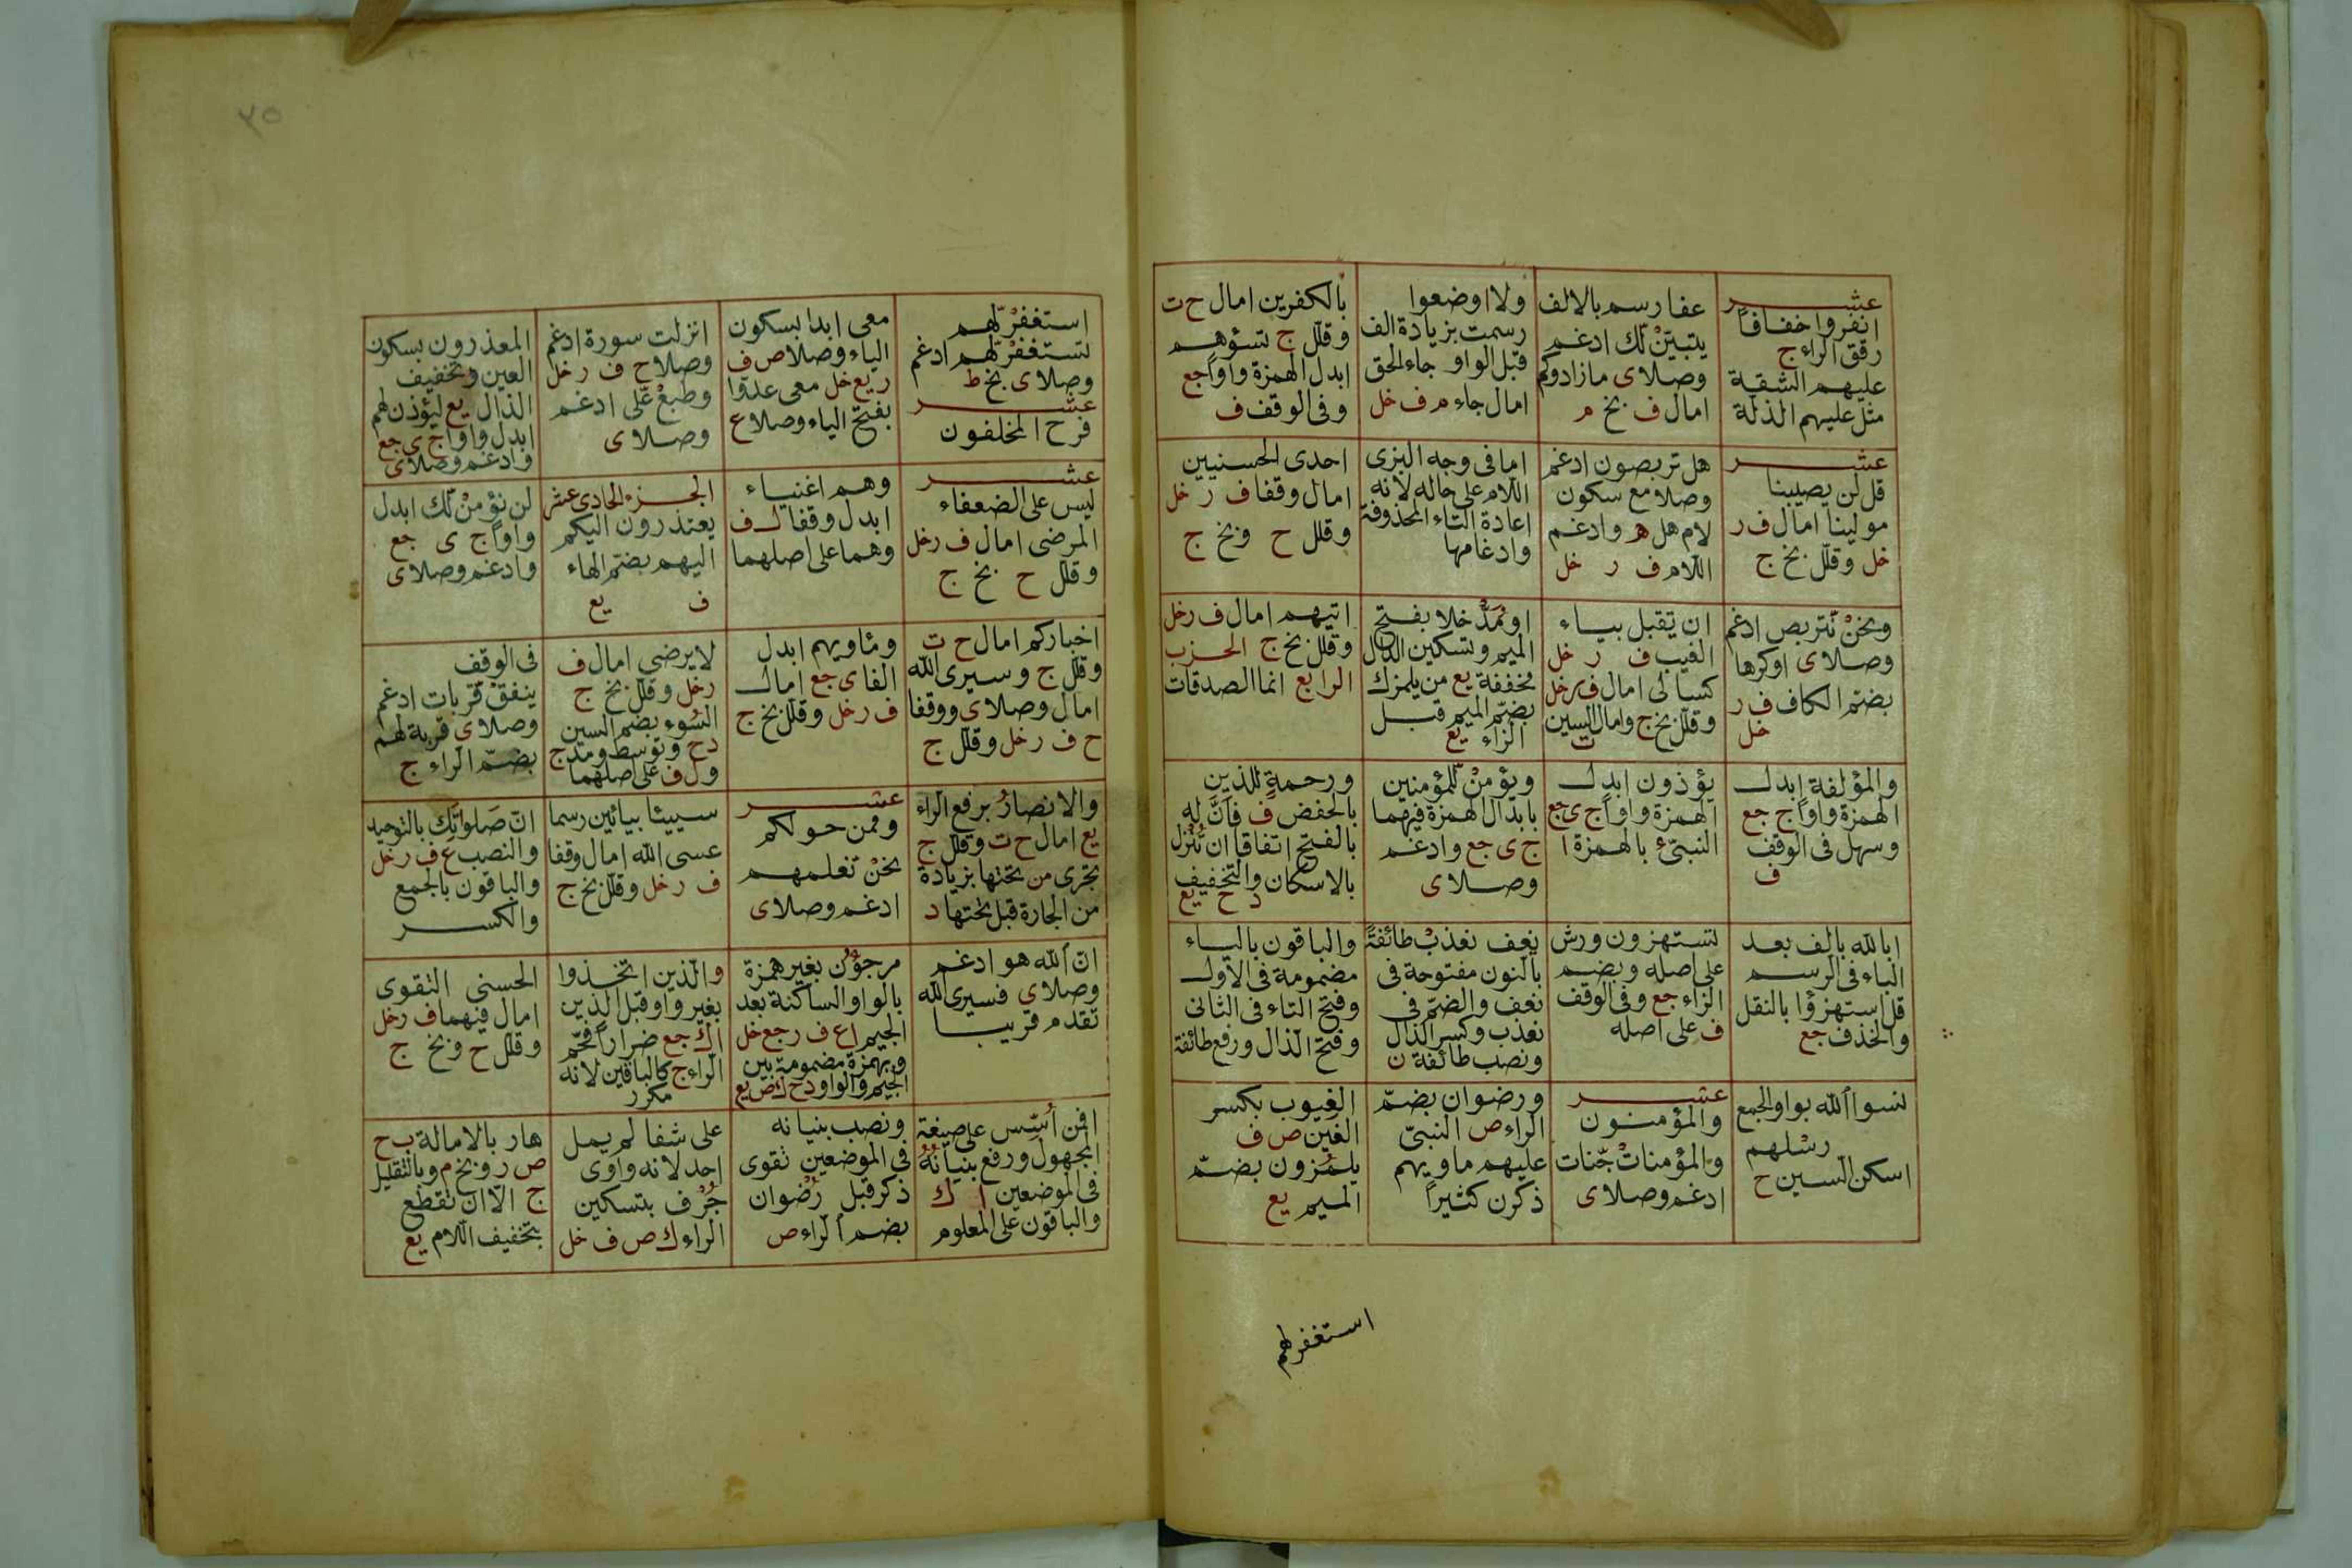 عشر
انفروا خفافاً
رقق الراء ج
عليهم الشقة
مثل عليهم الذلة
عفا رسم بالالف
يتبيّنْ لّك ادغم
وصلا ى ما زادوكم
امال ف بخ م
ولا اوضعوا
رسمت بزيادة الف
قبل الواو جاء الحق
امال جاء م ف خل
بالكفرين امال ح ت
وقلّل ج تسؤهم
ابدل الهمزة واواً جع
وفى الوقف ف
عشر
قل لن يصيبنا
مولينا امال ف ر
خل وقلّل بخ ج
هل تربصون ادغم
وصلا مع سكون
لام هل ه وادغم
اللام ف ر خل
اما فى وجه البزى
اللام على حاله لانه
اعادة التاء المحذوفة
وادغامها
احدى الحسنيين
امال وقفا ف ر خل
وقلل ح وبخ ج
ونحنْ نّتربص ادغم
وصلا ى اوكرها
بضم الكاف ف ر
خل
ان يقبل بياء
الغيب ف ر خل
كسالى امال ف ر خل
وقلّل بخ ج وامال السين
ت
او مَدْخلا بفتح
الميم وتسكين الدال
مخففة يع من يلمزك
بضمّ الميم قبل
الزاء يع
اتيهم امال ف ر خل
وقلل بخ ج الحزب
الرابع انما الصدقات
والمؤلفة ابدل
الهمزة واواً ج جع
وسهل فى الوقف
ف
يؤذون ابدل
الهمزة واواً ج ى جع
النبىء بالهمزة ا
ويؤمنْ لّلمؤمنين
بابدال الهمزة فيهما
ج ى جع وادغم
وصلا ى
ورحمةٍ للذين
بالخفض ف فانّ له
بالفتح اتفاقا ان تُنْزل
بالاسكان والتخفيف
د ح يع
ابالله بالف بعد
الباء فى الرسم
قل استهزؤا بالنقل
والحذف جع
تستهزون ورش
على اصله وبضم
الزاء جع وفى الوقف
ف على اصله
نعف نعذبْ طائفةً
بالنون مفتوحة فى
نعف والضم فى
نعذب وكسر الذال
ونصب طائفة ن
والباقون بالياء
مضمومة فى الاول
وفتح التاء فى الثانى
وفتح الذال ورفع طائفة
نسوا الله بواو الجمع
رسْلهم
اسكن السين ح
عشر
والمؤمنون
والمؤمناتْ جّنات
ادغم وصلا ى
ورضوان بضمّ
الراء ص النبىّ
عليهم ماويهم
ذكرن كثيراً
الغيوب بكسر
الغين ص ف
يلمُزون بضمّ
الميم يع
استغفر لهم
استغفرْ لّهم
تستغفرْ لّهم ادغم
وصلا ى بخ ط
عشر
فرح المخلفون
معى ابدا بسكون
الياء وصلا ص ف
ر يع خل معى عدوّا
بفتح الياء وصلا ع
انزلت سورة ادغم
وصلا ح ف ر خل
وطبعْ عّلى ادغم
وصلا ى
المعذرون بسكون
العين وتخفيف
الذال يع ليؤذن لهم
ابدل واوا ج ى جع
وادغم وصلا ى
عشر
ليس على الضعفاء
المرضى امال ف ر خل
وقلل ح بخ ج
وهم اغنياء
ابدل وقفا ل ف
وهما على اصلهما
الجزء الحادى عشر
يعتذرون اليكم
اليهم بضم الهاء
ف يع
لن نؤمنْ لّك ابدل
واواً ج ى جع
وادغم وصلا ى
اخباركم امال ح ت
وقلل ج وسيرى الله
امال وصلا ى ووقفا
ح ف ر خل وقلّل ج
ومٔاويهم ابدل
الفا ى جع امال
ف ر خل وقلّل بخ ج
لا يرضى امال ف
ر خل وقلّل بخ ج
السُوء بضم السين
د ح وتوسط ومدّ ج
ول ف على اصلهما
فى الوقف
ينفقْ قّربات ادغم
وصلا ى قربة لهم
بضمّ الراء ج
والانصارُ برفع الراء
يع امال ح ت وقلل ج
تجرى من تحتها بزيادة
من الجارة قبل تحتها د
عشر
وممن حولكم
نحنْ نعلمهم
ادغم وصلا ى
سيئا بيائين رسما
عسى الله امال وقفا
ف ر خل وقلّل بخ ج
انّ صلوتَك بالتوحيد
والنصب ع ف ر خل
والباقون بالجمع
والكسر
انّ الله هو ادغم
وصلا ى فسيرى الله
تقدم قريبا
مرجوْن بغير همزة
بالواو الساكنة بعد
الجيم ا ع ف ر جع خل
وبهمزة مضمومة بين
الجيم والواو د ح ك ص يع
والذين اتخذوا
بغير واو قبل الذين
ا ك جع ضراراً فخّم
الراء ج كالباقين لانه
مكرر
الحسنى التقوى
امال فيهما ف ر خل
وقلل ح وبخ ج
افمن اُسّس على صيغة
المجهول ورفع بنيانُهُ
فى الموضعين ا ك
والباقون على المعلوم
ونصب بنيانه
فى الموضعين تقوى
ذكر قبل رُضوان
بضم الراء ص
على شفا لم يمل
احد لانه واوى
جُرْف بتسكين
الراء ك ص ف خل
هار بالامالة ب ح
ص ر وبخ م وبالتقليل
ج الّا ان تقطع
بتخفيف اللام يع